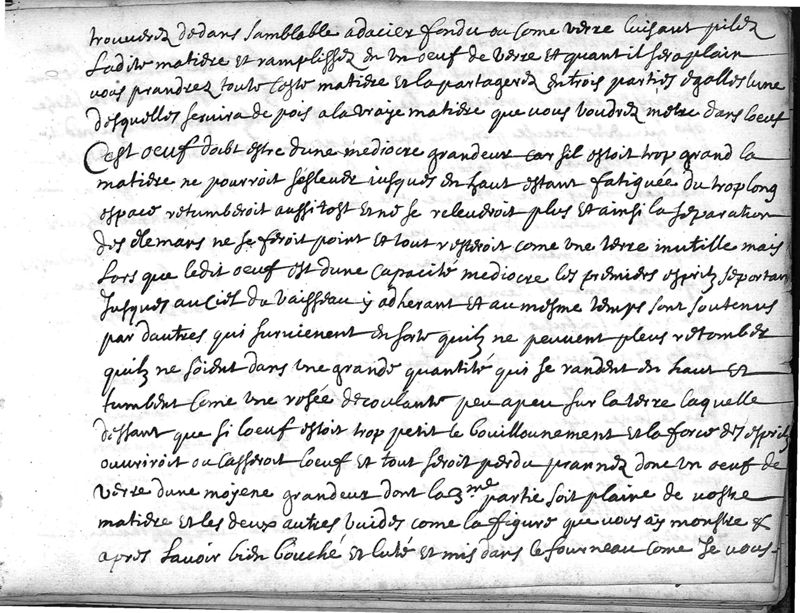 trouverez dedans samblable a dacier fondu ou come verre luisant pilez
Ladite matiere et ramplissez en un oeuf de verre et quant il sera plain
vous prandrez toute ceste matiere et la partagerez en trois parties egalles lune
desquelles servira de pois a la vraye matiere que vous voudrez metre dans loeuf
Cest oeuf doibt estre dune mediocre grandeur car sil estoit trop grand la
matiere ne pourroit seslever iusques en haut estant fatiguée du trop long
espace retumberoit aussi tost et ne se releveroit plus et ainsi la separation
des élemans ne se feroit point et tout resteroit come une terre inutille mais
Lors que ledit oeuf est dune capacité mediocre les premiers espritz se portan
Jusques au ciel du vaisseau y adherant et au mesme temps sont soutenus
par dautres qui survienent en sorte quilz ne peuvent pleus retomber
quilz ne soient dans une grande quantité qui se randent en haut et
tumbent come une rosée decoulante peu a peu sur la terre laquelle
dessant que si loeuf estoit trop petit le bouillounement et la force des espritz
ouvriroit ou casseroit loeuf et tout seroit perdu prannez donc un oeuf de
verre dune moyene grandeur dont la 3me partie soit plaine de vostre
matiere et les deux autres vuides come la figure que vous ay monstre &
apres Lavoir bien bouché et luté et mis dans le fourneau come Je vous-